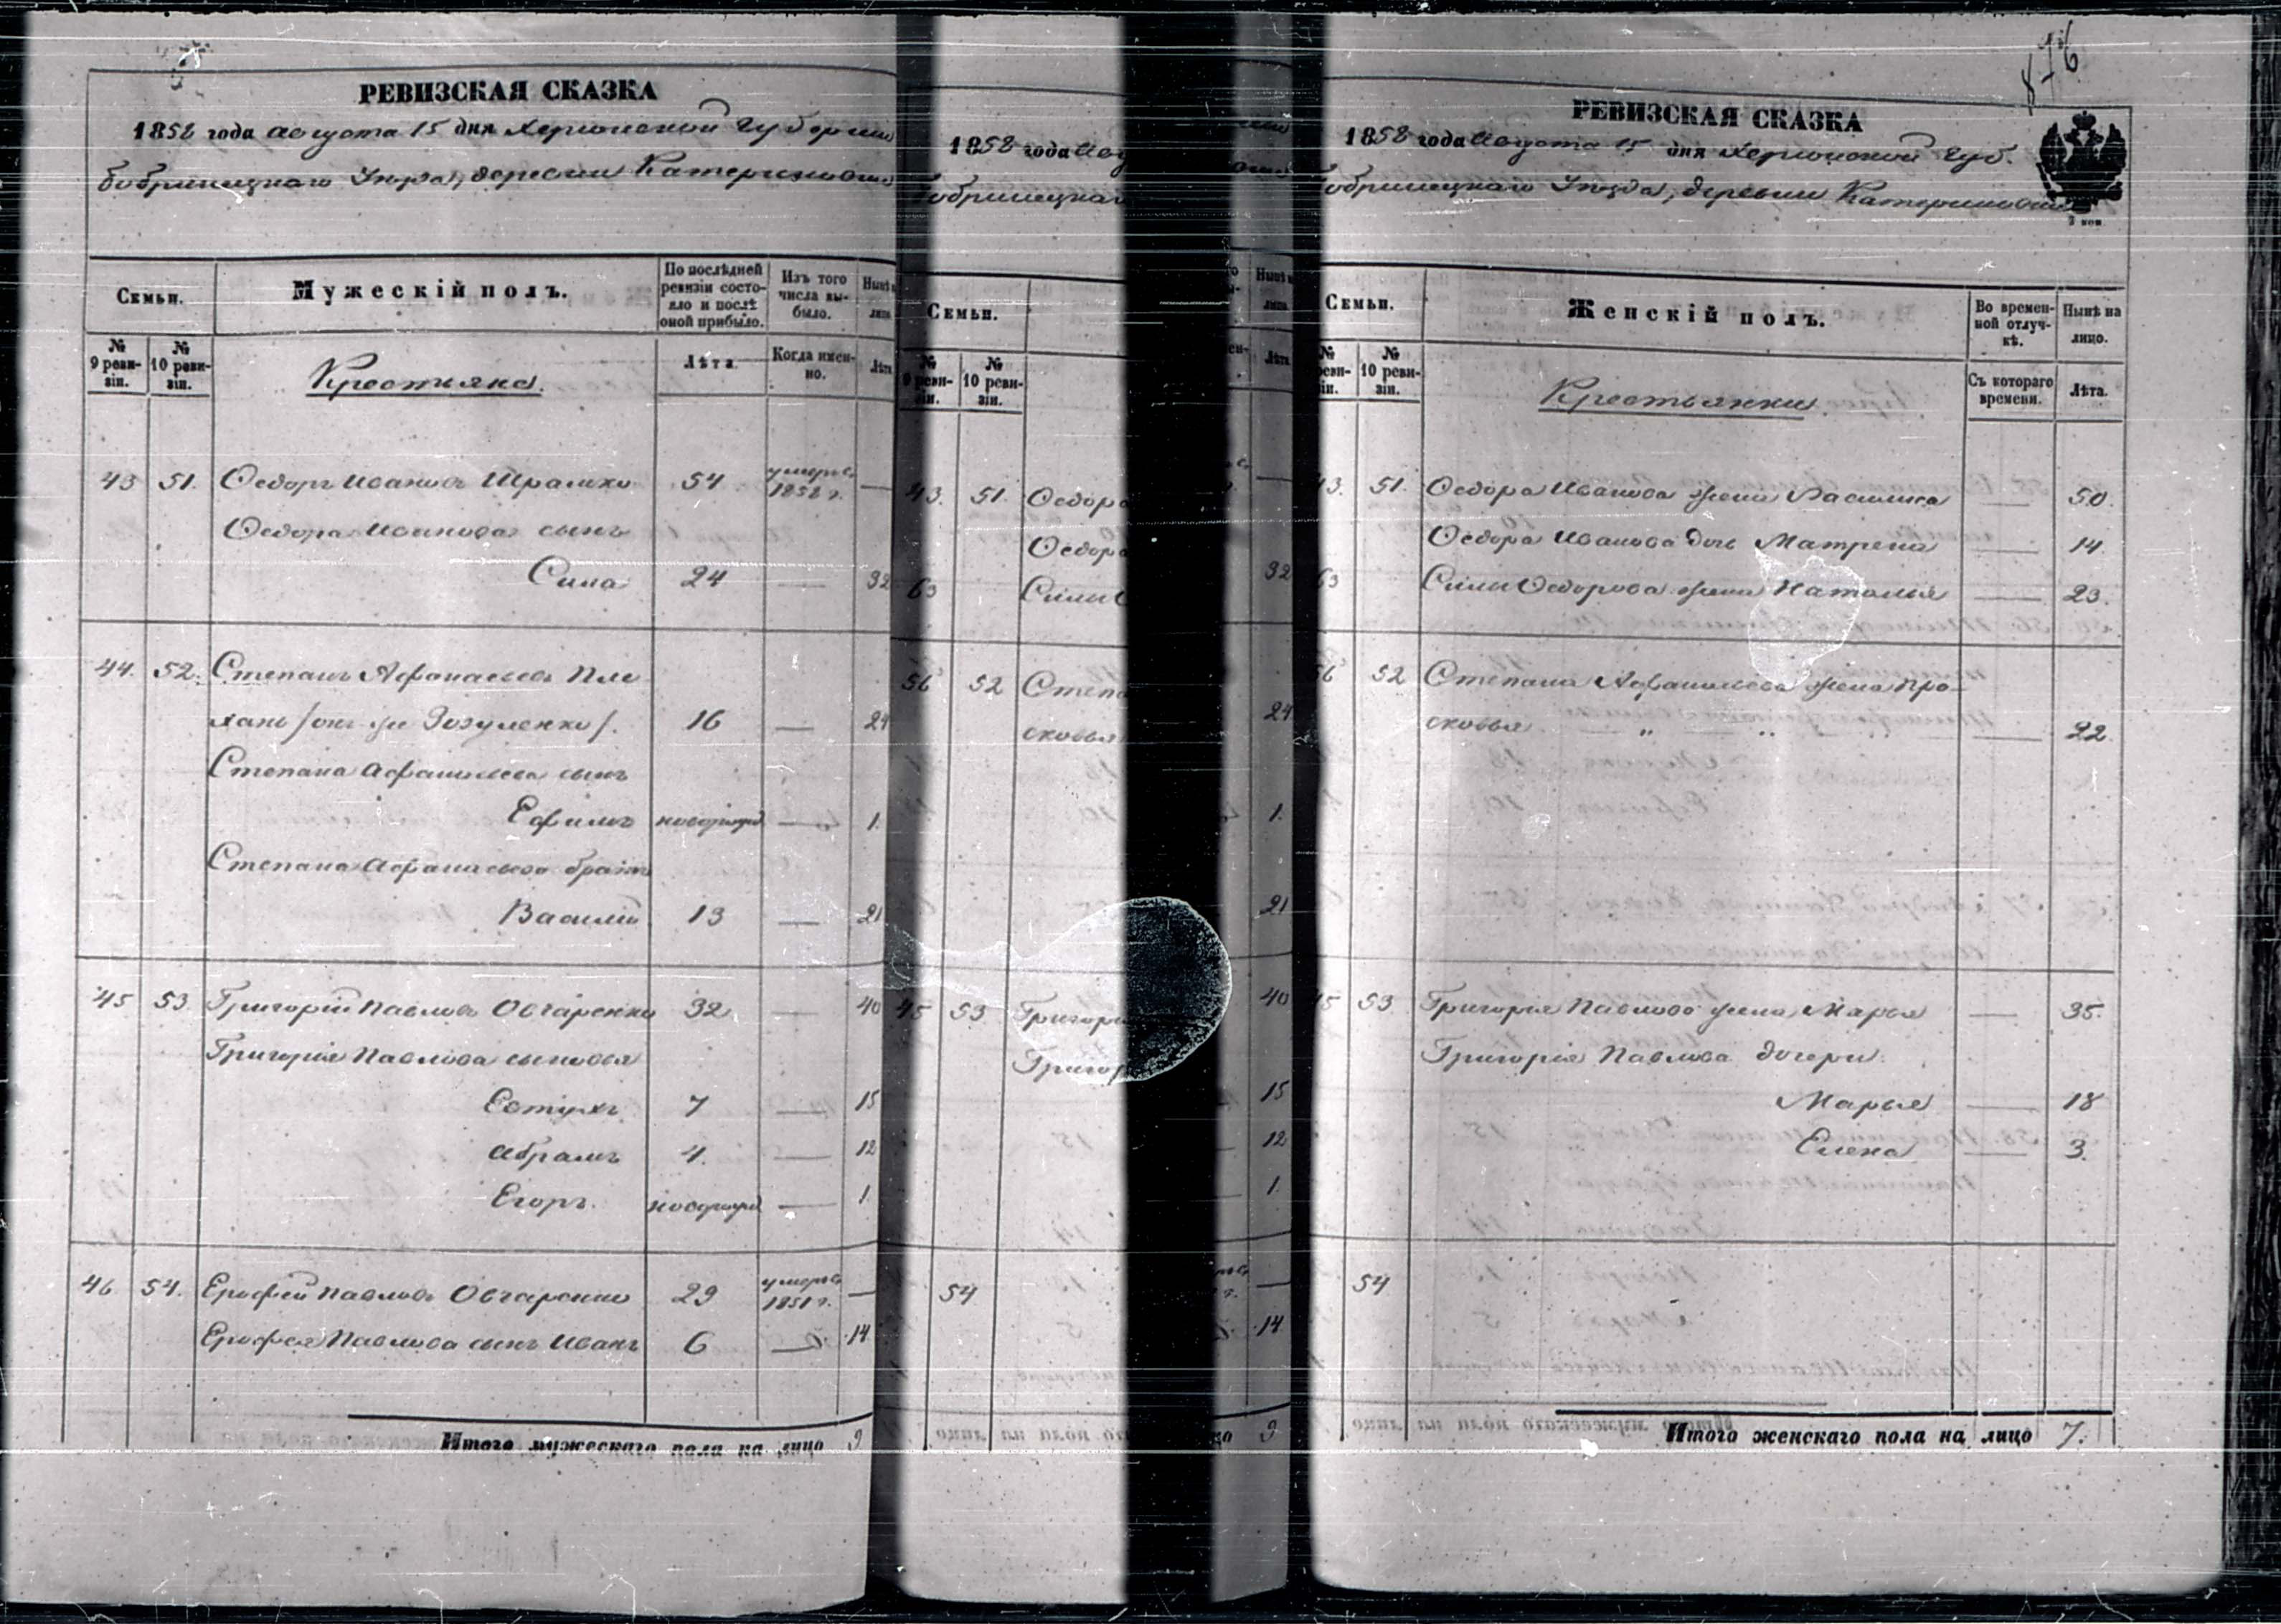 РЕВИЗСКАЯ СКАЗКА
1858 года Августа 15 дня Херсонской Губернии
Бобринецкаго Уезда, деревни Катериновки
Семьи.
Мужескій полъ.
По послѣдней ревизіи состояло и послѣ оной прибыло.
Изъ того числа выбыло.
№ 9 ревизіи.
№ 10 ревизіи.
Крестьяне.
Лѣта
Когда именно.
Лѣта
43 51. Ѳедоръ Ивановъ 54 умеръ 1858 г. —
Ѳедора Иванова сынъ
Сила 24 — 32
44. 52. Степанъ Афанасьевъ Пле
хань /онъ же Зозуленко/. 16 — 24
Степана Афанасьева сынъ
Ефимъ новорожд — 1.
Степана Афанасьева братъ
Василій 13 — 21
45 53 Григорій Павловъ Овчаренко 32 — 40
Григорія Павлова сыновья
7 — 15
Абрамъ 4. — 12
Егоръ. новорожд — 1.
46. 54. Ерофей Павловъ Овчаренко 29 умеръ 1851 г. —
Ерофея Павлова сынъ Иванъ 6 — 14
Итого мужескаго пола на лицо 9
1858 года
Семьи.
№ 9 ревизіи.
№ 10 ревизіи.
43. 51. Ѳедора
Ѳедора
63 Силы
32
56 52 Степа
сковья
24
1.
21
45 53 Григорі
Григор
40
15
12
1.
54
14
9
РЕВИЗСКАЯ СКАЗКА
1858 года Августа 15 дня Херсонской Губ.
Бобринецкаго Уезда, деревни Катериновки
Семьи.
Женскій полъ.
Во временной отлучкѣ.
Нынѣ на лицо.
№ ревизіи.
№ 10 ревизіи.
Крестьянки.
Съ котораго времени.
Лѣта.
43. 51. Ѳедора Иванова жена Василиса — 50.
Ѳедора Иванова дочь Матрена — 14
63 Силы Ѳедорова жена Наталья — 23.
56 52 Степана Афанасьева жена Про
сковья " " — 22.
45 53 Григорія Павлова жена Марья — 35.
Григорія Павлова дочери
Марья — 18
Елена — 3.
54
Итого женскаго пола на лицо 7.